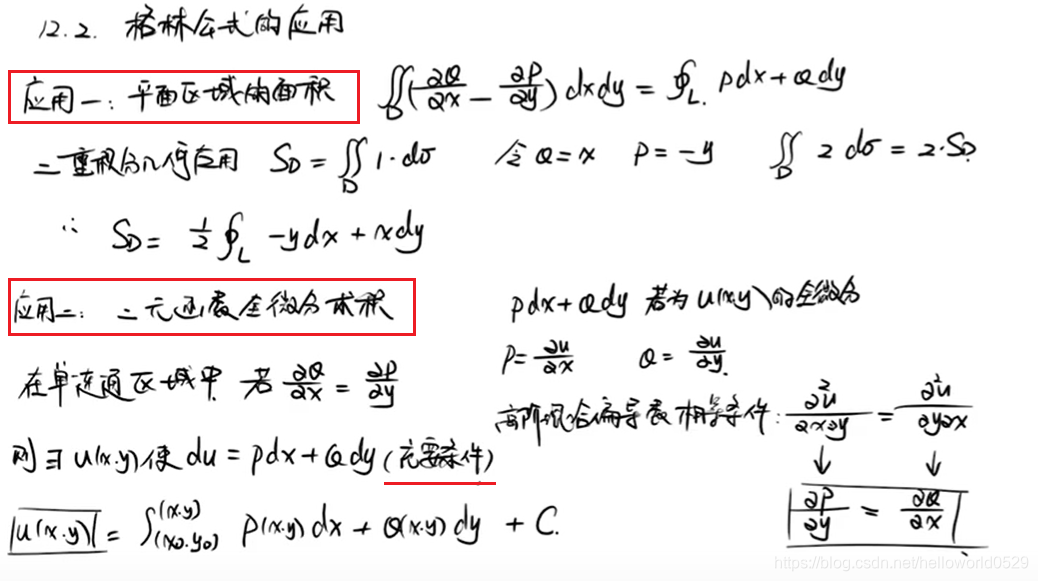 12.2. 格林公式的应用
应用一：平面区域的面积 ∬_D (∂Q/∂x − ∂P/∂y) dxdy = ∮_L. Pdx + Qdy
二重积分几何应用 S_D = ∬_D 1·dσ 令 Q = x P = −y ∬_D 2 dσ = 2·S_D.
∴ S_D = 1/2 ∮_L −ydx + xdy
应用二：二元函数全微分求积
Pdx + Qdy 若为 u(x.y) 的全微分
P = ∂u/∂x Q = ∂u/∂y.
在单连通区域中. 若 ∂Q/∂x = ∂P/∂y
高阶混合偏导数相等条件: ∂²u/∂x∂y = ∂²u/∂y∂x
则 ∃ u(x.y) 使 du = Pdx + Qdy (充要条件)
↓ ↓
∂P/∂y = ∂Q/∂x
u(x.y) = ∫_(x0.y0)^(x.y) P(x.y) dx + Q(x.y) dy + C.
https://blog.csdn.net/helloworld0529